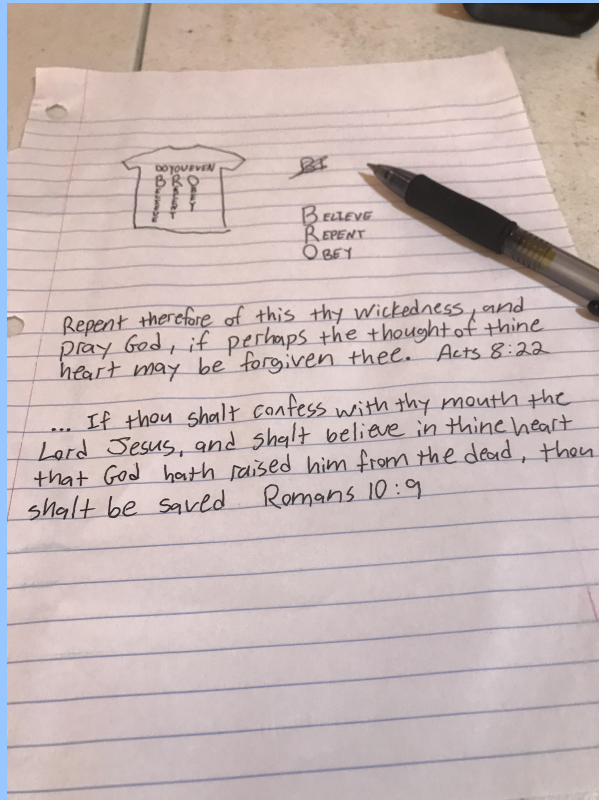 DO YOU EVEN
BRO
BELIEVE
REPENT
OBEY
BI
BELIEVE
REPENT
OBEY
Repent therefore of this thy wickedness, and
pray God, if perhaps the thought of thine
heart may be forgiven thee. Acts 8:22
... If thou shalt confess with thy mouth the
Lord Jesus, and shalt believe in thine heart
that God hath raised him from the dead, thou
shalt be saved Romans 10:9